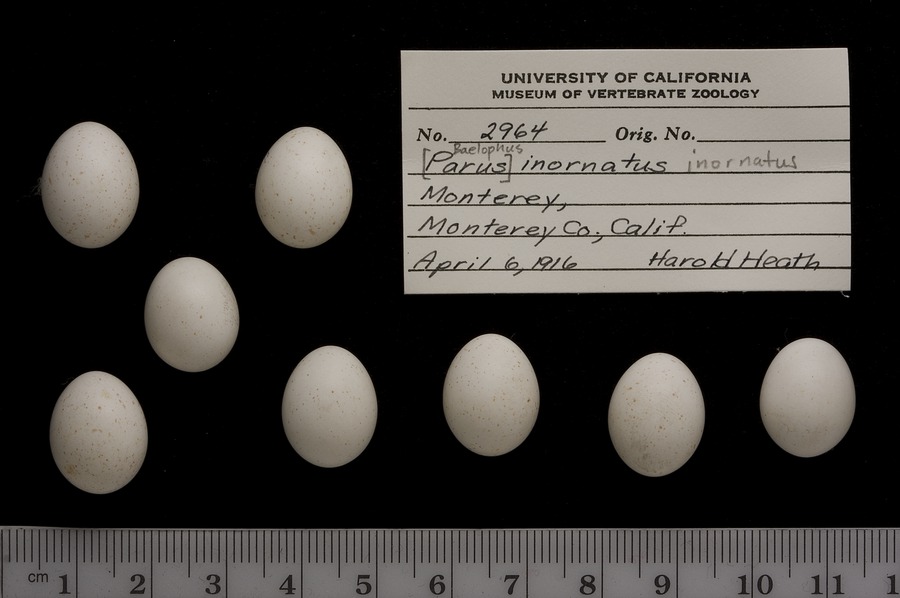 UNIVERSITY OF CALIFORNIA
MUSEUM OF VERTEBRATE ZOOLOGY
No. 2964 Orig. No.
Baelophus
[Parus] inornatus inornatus
Monterey,
Monterey Co., Calif.
April 6, 1916 Harold Heath
cm 1 2 3 4 5 6 7 8 9 10 11 1